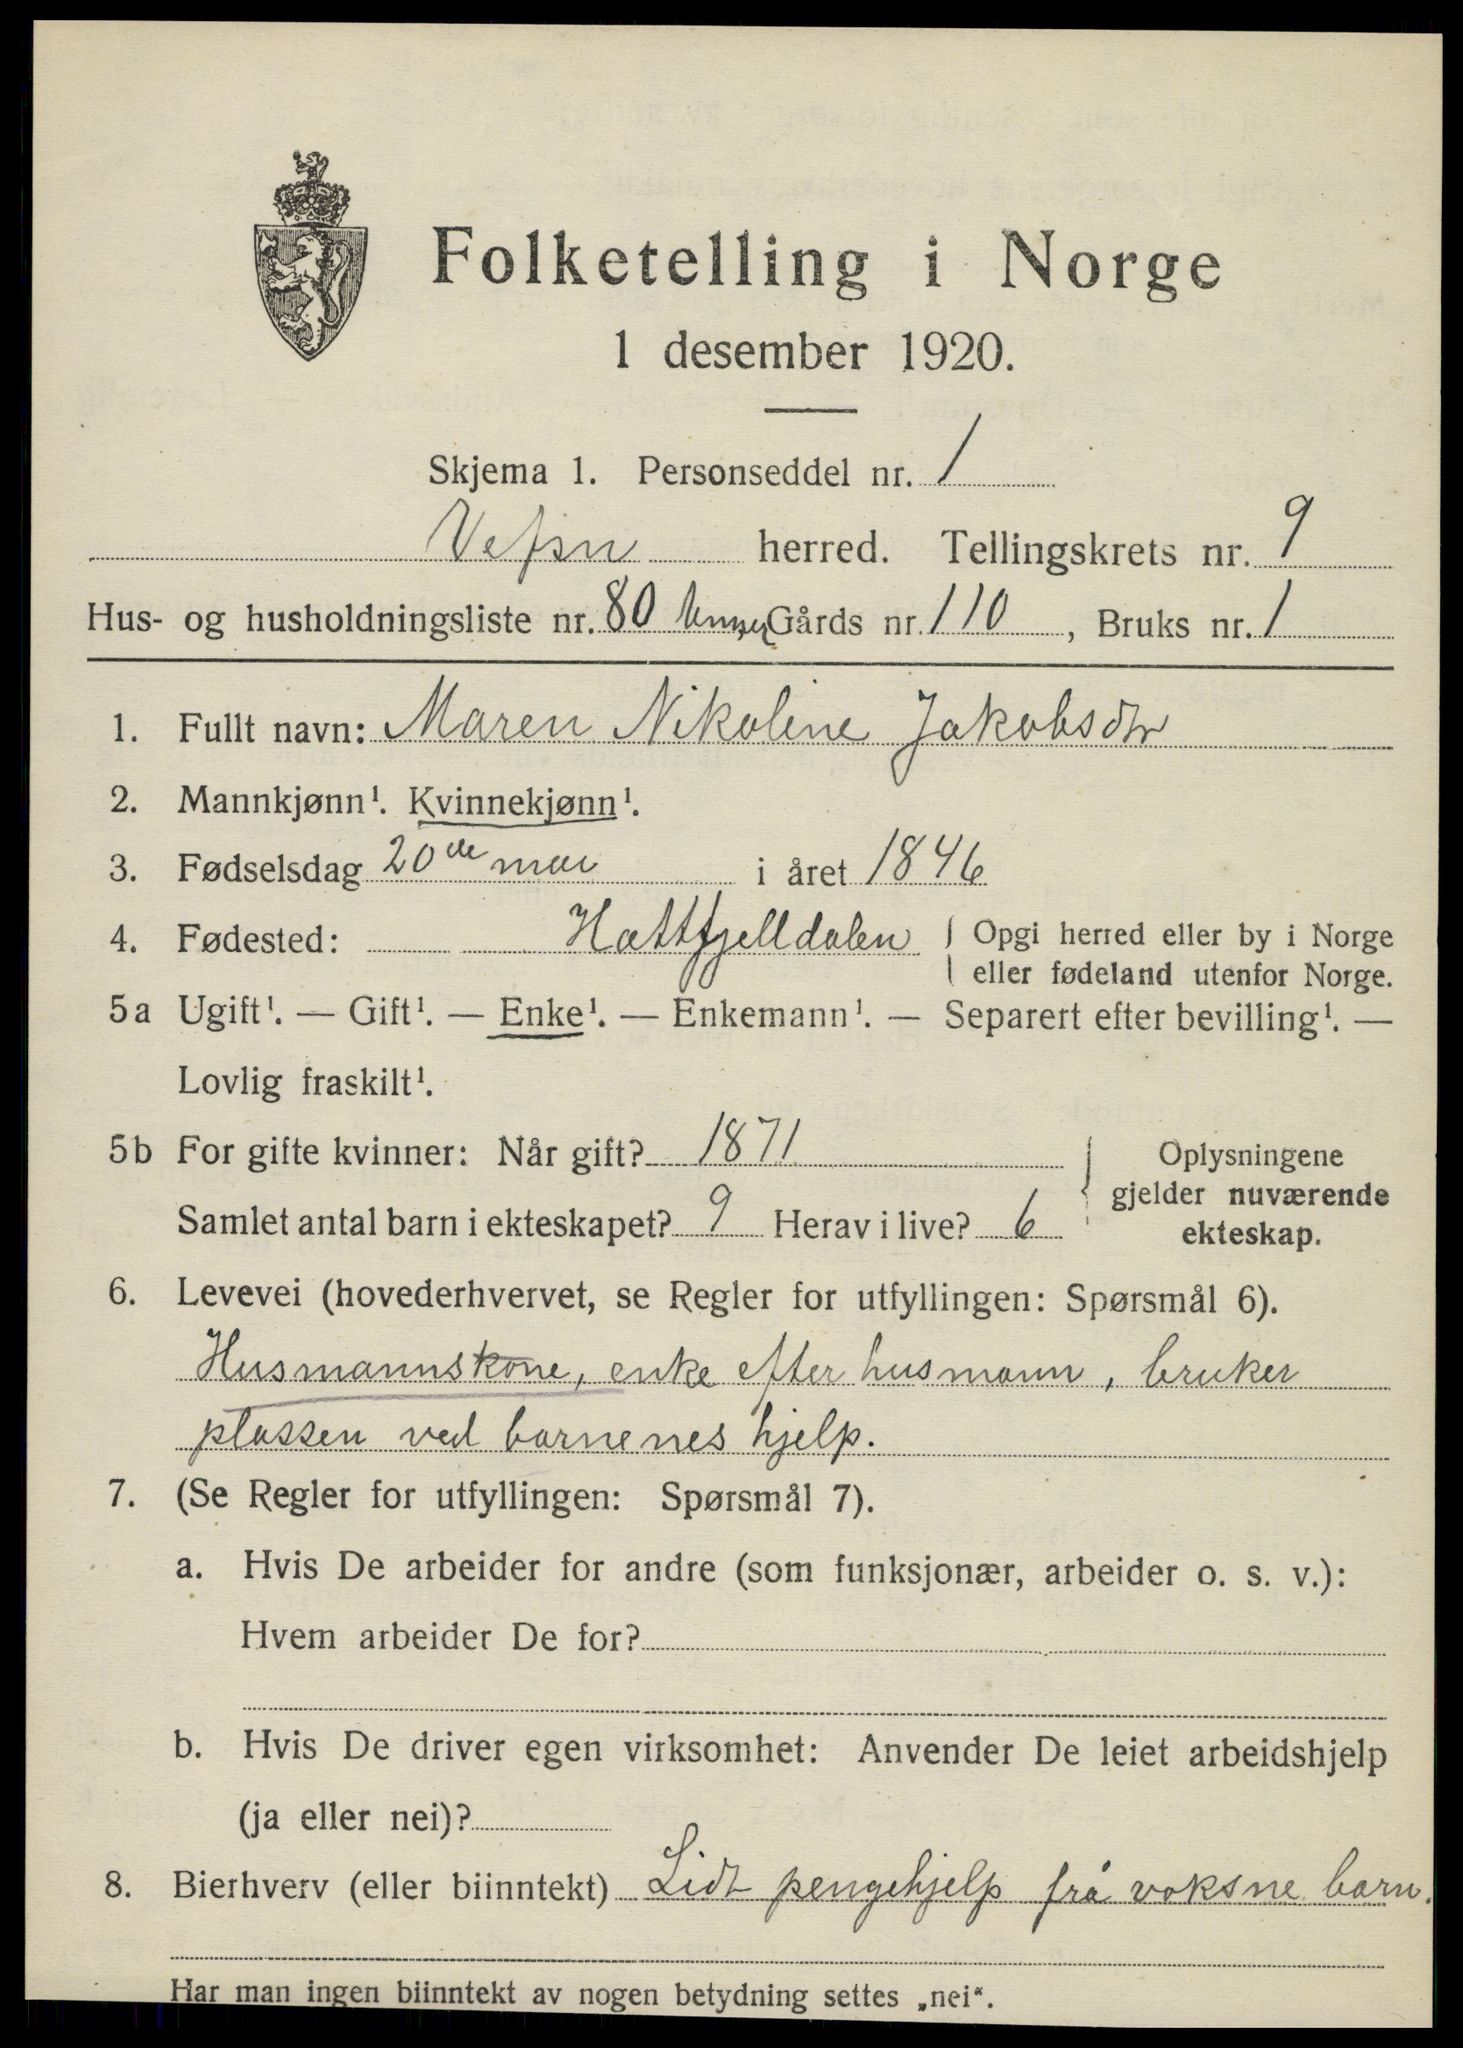 Folketelling i Norge
1 desember 1920.
Skjema 1. Personseddel nr. 1
Vefsn herred. Tellingskrets nr. 9
Hus- og husholdningsliste nr. 80 Gårds nr. 110, Bruks nr. 1
1. Fullt navn: Maren Nikoline Jakobsdtr
2. Mannkjønn¹. Kvinnekjønn¹.
3. Fødselsdag 20de mai i året 1846
4. Fødested: Hattfjelldalen { Opgi herred eller by i Norge
eller fødeland utenfor Norge.
5a Ugift¹. — Gift¹. — Enke¹. — Enkemann¹. — Separert efter bevilling¹. —
Lovlig fraskilt¹.
5b For gifte kvinner: Når gift? 1871
Samlet antal barn i ekteskapet? 9 Herav i live? 6
Oplysningene
gjelder nuværende
ekteskap.
6. Levevei (hovederhvervet, se Regler for utfyllingen: Spørsmål 6).
Husmannskone, enke efter husmann, bruker
plassen ved barnenes hjelp.
7. (Se Regler for utfyllingen: Spørsmål 7).
a. Hvis De arbeider for andre (som funksjonær, arbeider o. s. v.):
Hvem arbeider De for?
b. Hvis De driver egen virksomhet: Anvender De leiet arbeidshjelp
(ja eller nei)?
8. Bierhverv (eller biinntekt) Lidt pengehjelp frå voksne barn.
Har man ingen biinntekt av nogen betydning settes „nei“.